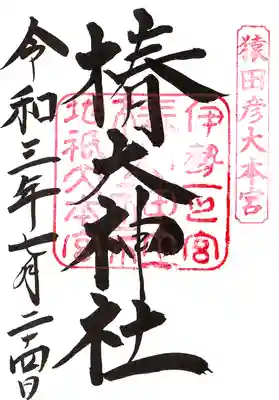 猿田彦大本宮
伊勢一之宮
椿大神社
地祇大本宮
令和三年七月二十四日